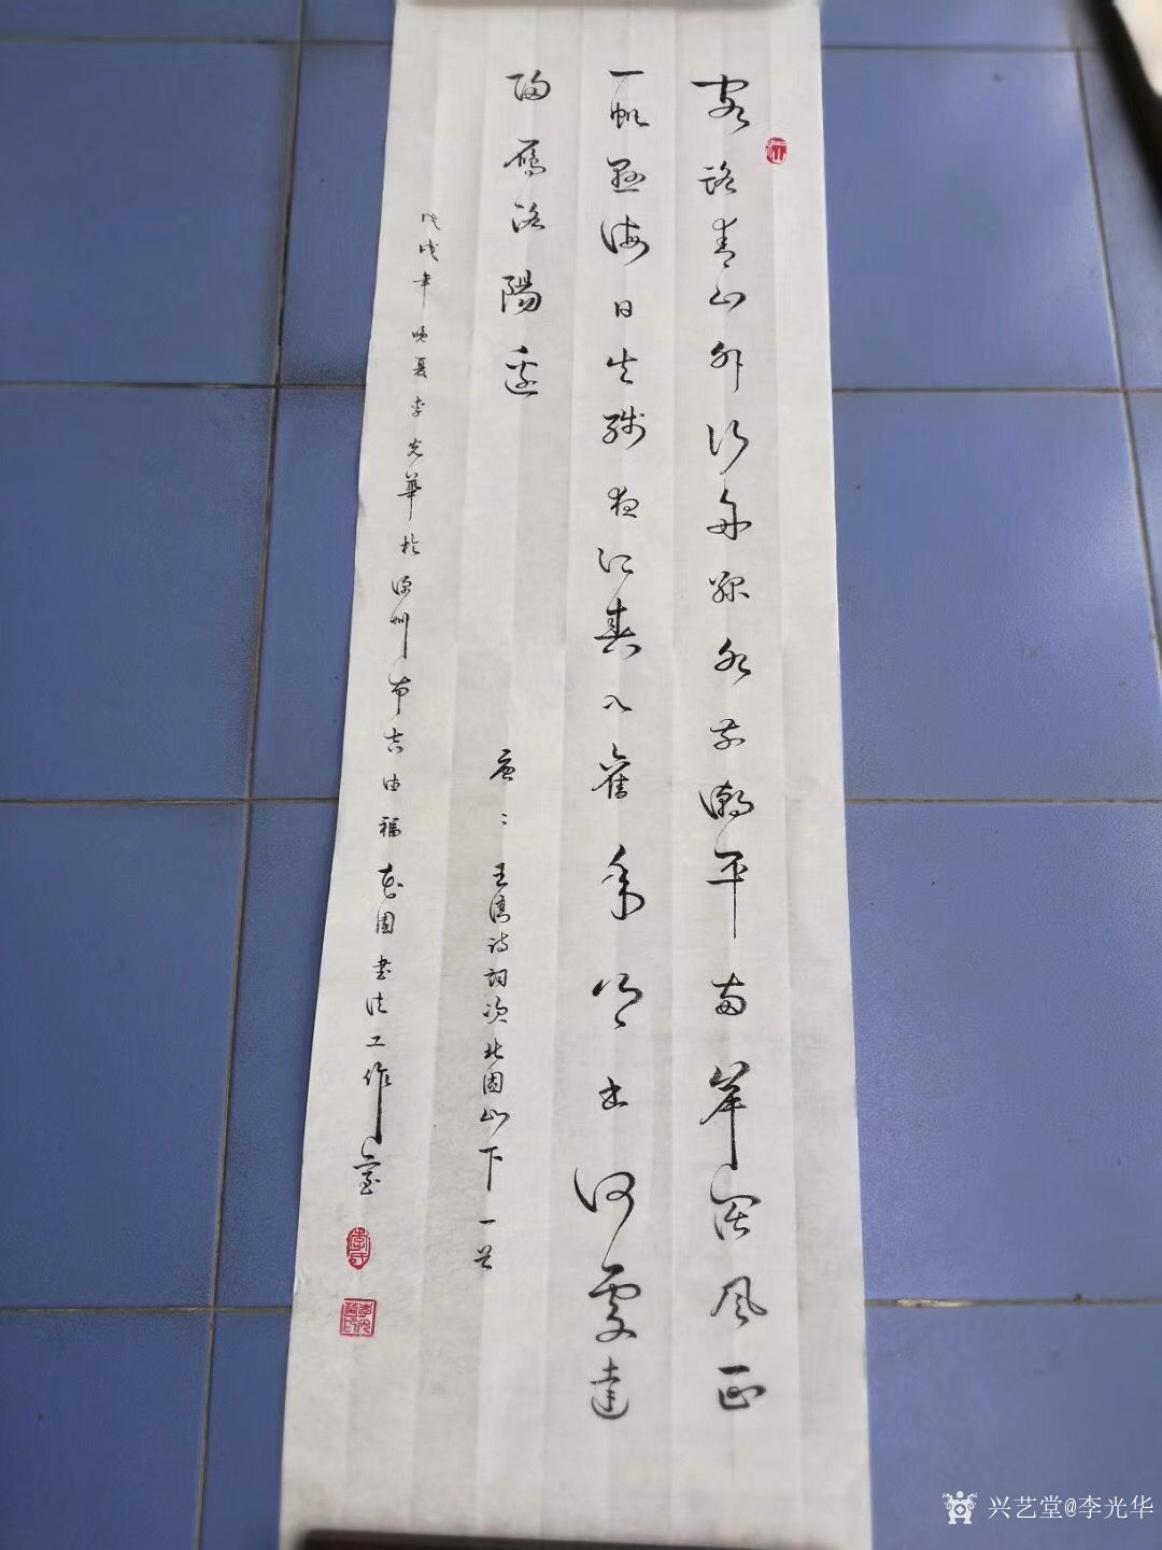 客路青山外行舟綠水前潮平兩岸闊風正
一帆懸海日生殘夜江春入舊年鄉書何處達
歸雁洛陽邊
唐：王灣詩詞次北固山下一首
戊戌年晚夏李光華於深圳布吉由福花園書法工作室
兴艺堂@李光华